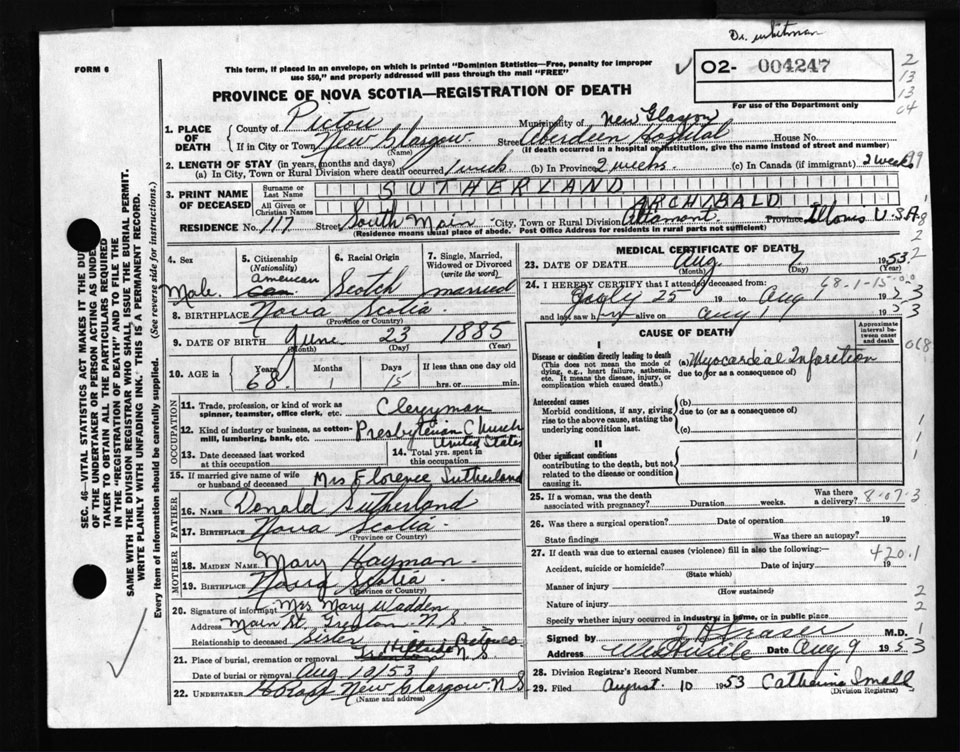 Dr. Whitman
FORM 6
This form, if placed in an envelope, on which is printed "Dominion Statistics—Free, penalty for improper
use $50," and properly addressed will pass through the mail "FREE"
✓ 02- 004247
PROVINCE OF NOVA SCOTIA—REGISTRATION OF DEATH
For use of the Department only
2
13
13
04
1. PLACE OF DEATH
County of Pictou Municipality of New Glasgow
If in City or Town New Glasgow (Name) Street Aberdeen Hospital House No.
(If death occurred in a hospital or institution, give the name instead of street and number)
2. LENGTH OF STAY (in years, months and days)
(a) In City, Town or Rural Division where death occurred 1 week (b) In Province 2 weeks. (c) In Canada (if immigrant) 2 weeks
3. PRINT NAME OF DECEASED
Surname or Last Name SUTHERLAND
All Given or Christian Names ARCHIBALD
RESIDENCE No. 117 Street South Main City, Town or Rural Division Altamont Province Illonis U.S.A.
(Residence means usual place of abode. Post Office Address for residents in rural parts not sufficient)
4. Sex
Male
5. Citizenship (Nationality)
American
6. Racial Origin
Scotch
7. Single, Married, Widowed or Divorced (write the word)
married
8. BIRTHPLACE Nova Scotia
(Province or Country)
9. DATE OF BIRTH June 23 1885
(Month) (Day) (Year)
10. AGE in Years 68 Months 1 Days 15 If less than one day old
hrs. or min.
OCCUPATION
11. Trade, profession, or kind of work as spinner, teamster, office clerk, etc. Clergyman
12. Kind of industry or business, as cotton-mill, lumbering, bank, etc. Presbyterian Church
United States
13. Date deceased last worked at this occupation
14. Total yrs. spent in this occupation
15. If married give name of wife or husband of deceased Mrs Florence Sutherland
FATHER
16. NAME Donald Sutherland
17. BIRTHPLACE Nova Scotia
(Province or Country)
MOTHER
18. MAIDEN NAME Mary Hayman
19. BIRTHPLACE Nova Scotia
(Province or Country)
20. Signature of informant Mrs Mary Wadden
Address Main St, Trenton N.S.
Relationship to deceased Sister
21. Place of burial, cremation or removal Hillside N.S.
Date of burial or removal Aug 10/53
22. UNDERTAKER New Glasgow N.S
(Name and address)
MEDICAL CERTIFICATE OF DEATH
23. DATE OF DEATH Aug 7 1953
(Month) (Day) (Year)
68-1-15
24. I HEREBY CERTIFY that I attended deceased from:
July 25 19 to Aug 1953
and last saw h alive on Aug 1953
CAUSE OF DEATH
Approximate interval between onset and death
I
Disease or condition directly leading to death
(This does not mean the mode of dying, e.g., heart failure, asthenia, etc. It means the disease, injury, or complication which caused death.)
(a) Myocardial Infarction
due to (or as a consequence of)
Antecedent causes
Morbid conditions, if any, giving rise to the above cause, stating the underlying condition last.
(b)
due to (or as a consequence of)
(c)
II
Other significant conditions
contributing to the death, but not related to the disease or condition causing it.
25. If a woman, was the death associated with pregnancy? Duration weeks. Was there a delivery? 8-07-3
26. Was there a surgical operation? Date of operation 19
State findings Was there an autopsy?
27. If death was due to external causes (violence) fill in also the following:—
420.1
Accident, suicide or homicide? Date of injury 19
(State which)
Manner of injury
(How sustained)
Nature of injury
Specify whether injury occurred in industry in home, or in public place
Signed by Fraser M.D.
Address Westville Date Aug 9 1953
28. Division Registrar's Record Number
29. Filed August 10 1953 Catherine Small
(Division Registrar)
SEC. 46—VITAL STATISTICS ACT MAKES IT THE DUTY
OF THE UNDERTAKER OR PERSON ACTING AS UNDERTAKER
TO OBTAIN ALL THE PARTICULARS REQUIRED
IN THE "REGISTRATION OF DEATH" AND TO FILE THE
SAME WITH THE DIVISION REGISTRAR WHO SHALL ISSUE THE BURIAL PERMIT.
WRITE PLAINLY WITH UNFADING INK. THIS IS A PERMANENT RECORD.
Every item of information should be carefully supplied. (See reverse side for instructions.)